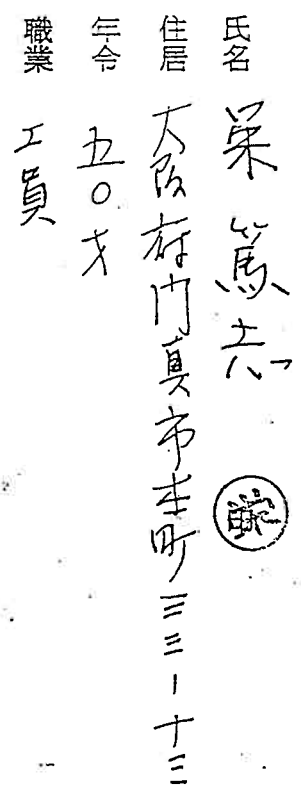 氏名 篤志
住居 大阪府門真市本町三三ー十三
年令 五〇才
職業 工員